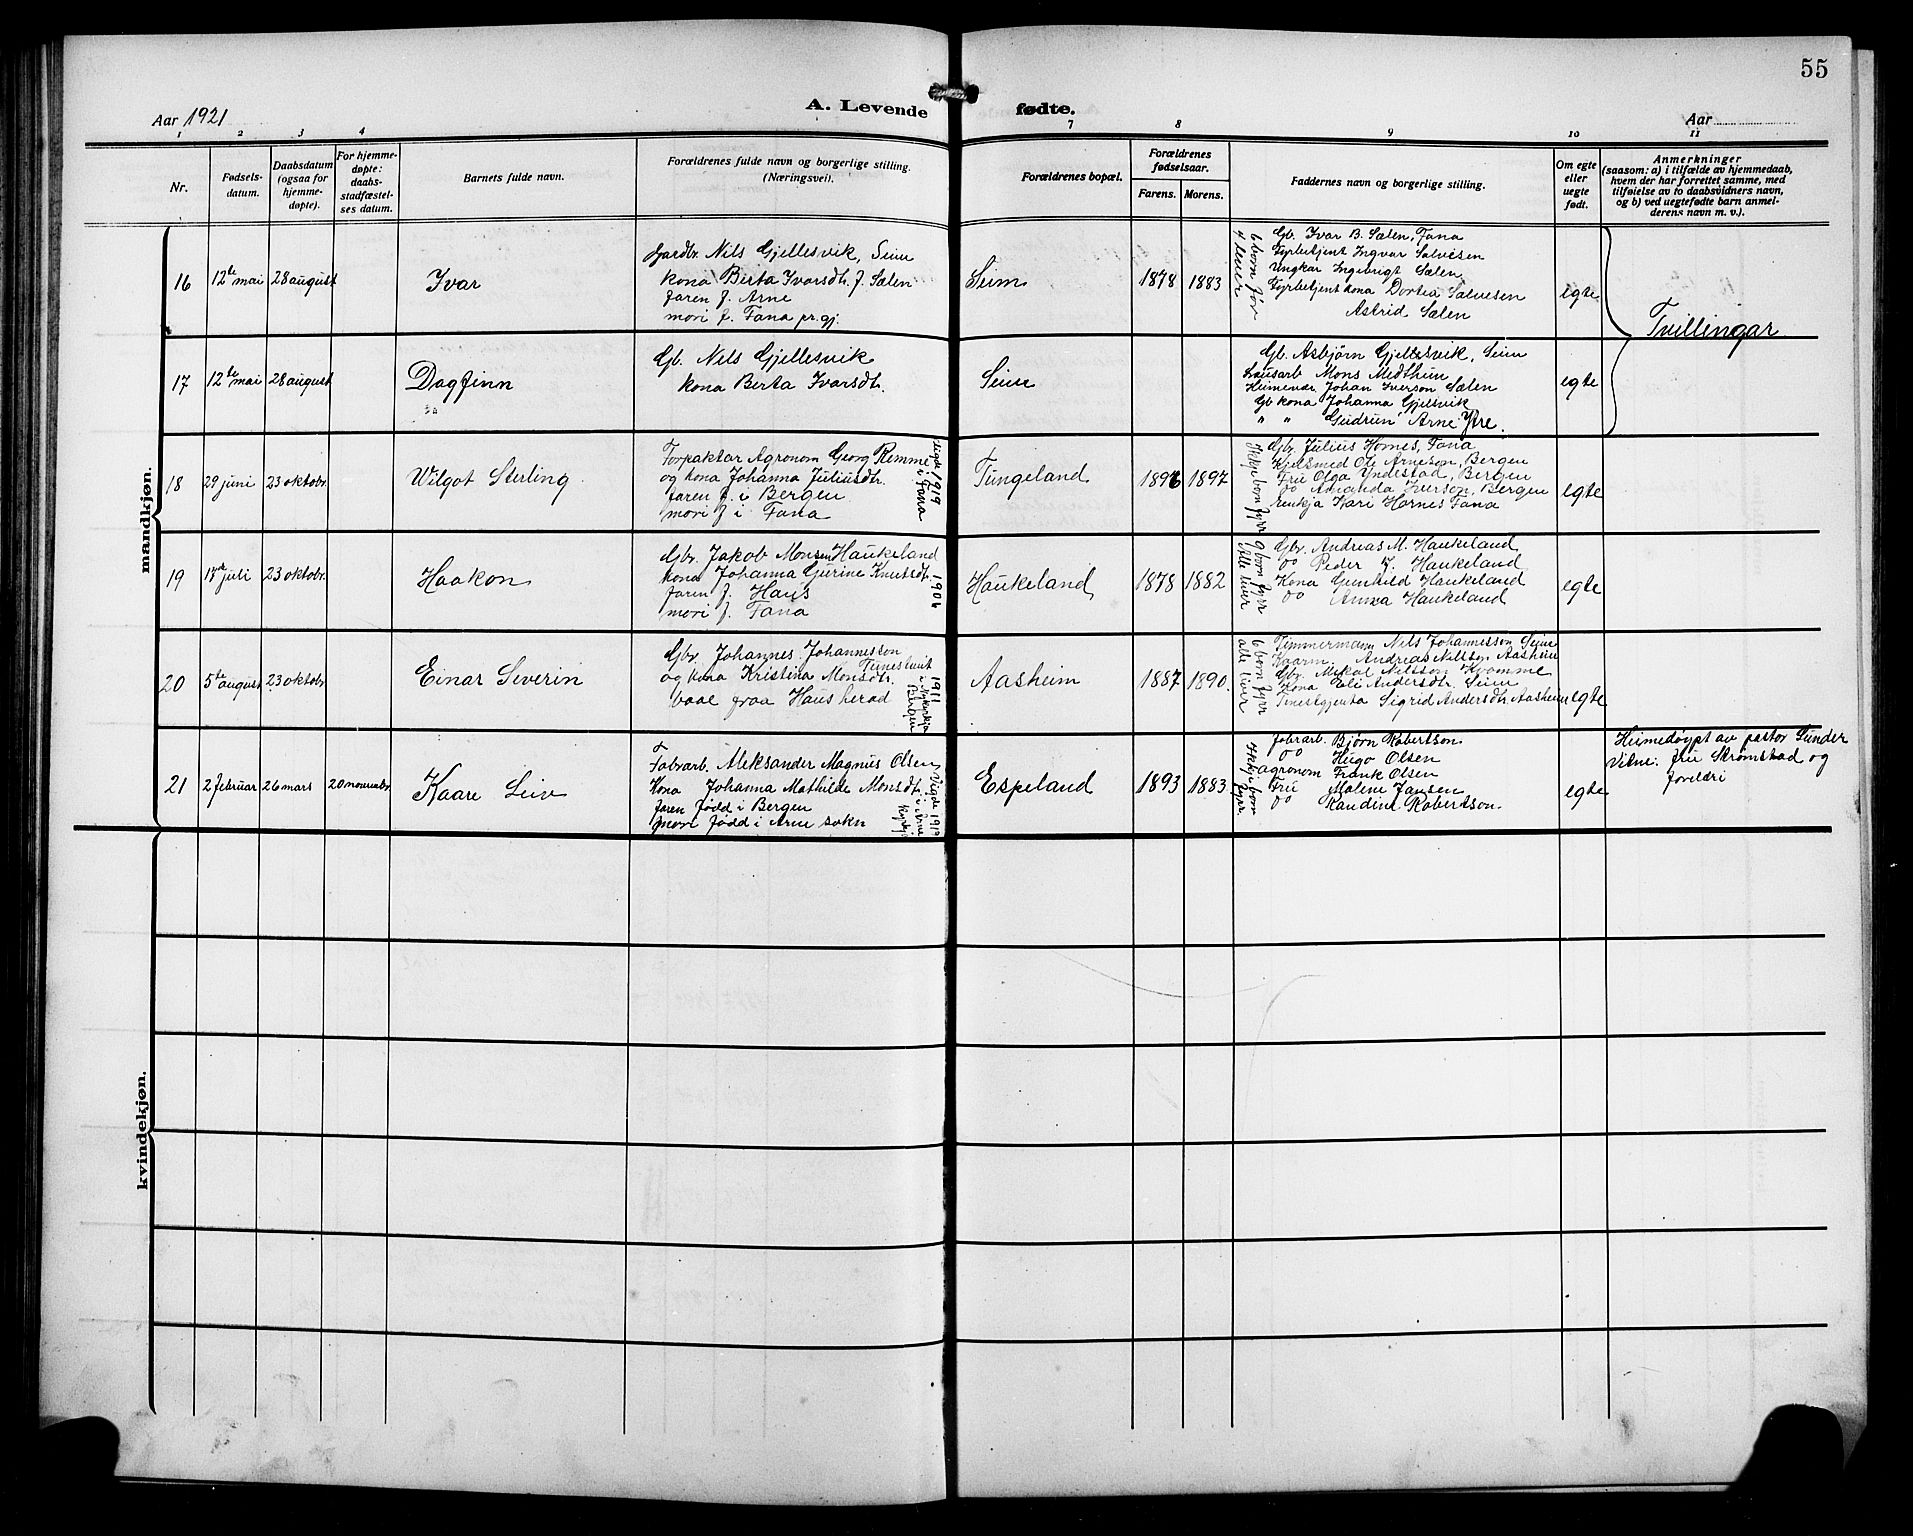 55
Aar 1921
A. Levende fødte.
Aar
1 2 3 4 7 8 9 10 11
Nr.
Fødsels-
datum.
Daabsdatum
(ogsaa for
hjemme-
døpte).
For hjemme-
døpte:
daabs-
stadfæstel-
ses datum.
Barnets fulde navn.
Forældrenes fulde navn og borgerlige stilling.
(Næringsvei).
Forældrenes bopæl.
Forældrenes
fødselsaar.
Farens. Morens.
Faddernes navn og borgerlige stilling.
Om egte
eller
uegte
født.
Anmerkninger
(saasom: a) i tilfælde av hjemmedaab,
hvem der har forrettet samme, med
tilføielse av to daabsvidners navn,
og b) ved uegtefødte barn anmel-
derens navn m. v.).
mandkjøn.
16
12te mai
28 august
Ivar
Gardbr. Nils Gjellesvik, Seim
kona Berta Ivarsdtr. f. Sælen
faren f. Arne
mori f. Fana pr.gj.
Seim
1878 1883
6 born før
4 lever
Gb. Ivar B. Sælen, Fana
Fyrbetjent Ingvar Salvesen
Ungkar Ingebrigt Sælen
Fyrbetjent kona Dortea Salvesen
Astrid Sælen
egte
Tvillingar
17
12te mai
28 august
Dagfinn
Gb. Nils Gjellesvik
kona Berta Ivarsdtr.
Seim
Gb. Asbjørn Gjellesvik, Seim
Lausarb Mons Medthun
Heimevær Johan Iverson Sælen
Gb kona Johanna Gjelsvik
" " Gudrun Arne Ytre.
egte
18
29 juni
23 oktobr.
Wilgot Sterling
Forpaktar Agronom Georg Remme
og kona Johanna Juliusdtr.
faren f. i Bergen
mori f. i Fana
Vigde 1919
i Fana
Tungeland
1896 1897
Ikkje born fyrr
Gbr. Julius Hornes, Fana
Gjelsmed Ole Arneson, Bergen
Fru Olga Yndestad, Bergen
do Amanda Iverson, Bergen
Enukja Kari Hornes Fana
egte
19
17de juli
23 oktobr.
Haakon
Gbr. Jakob Monsen Haukeland
kona Johanna Gurine Knutsdtr.
faren f. Haus
mori f. Fana
1906
Haukeland
1878 1882
9 born fyrr
alle liver
Gbr. Andreas M. Haukeland
do Peder J. Haukeland
Kona Gunhild Haukeland
do Anna Haukeland
egte
20
5te august
23 oktobr.
Einar Severin
Gbr. Johannes Johannesson
Tunestveit
og kona Kristina Monsdtr.
baae fraa Haus herad
1911
i Nykyrkja
Bergen
Aasheim
1887 1890.
6 born fyrr
alle liver
Timmermann Nils Johannesson Seim
Kaarm. Andreas Nilsson Aasheim
Gbr. Mikal Nilsson Kvamme
Kona Eli Andersdtr. Seim
Tenestgjenta Sigrid Andersdtr. Aasheim
egte
21
2 februar
26 mars
20 novembr.
Kaare Leiv
Fabrarb. Aleksander Magnus Olsen
Kona Johanna Mathilde Monsdtr.
faren fødd i Bergen
mori fødd i Arne sokn
Vigde 1919
i Arne
Kyrkj
Espeland
1893 1883
Ikkje born
fyrr.
Fabrarb. Bjørn Robertson
do Hugo Olsen
agronom Frank Olsen
Fru Malene Jansen
do Randine Robertson.
egte
Heimedøypt av pastor Gunder
Vitne: fru Strømstad og
foreldri
kvindekjøn.